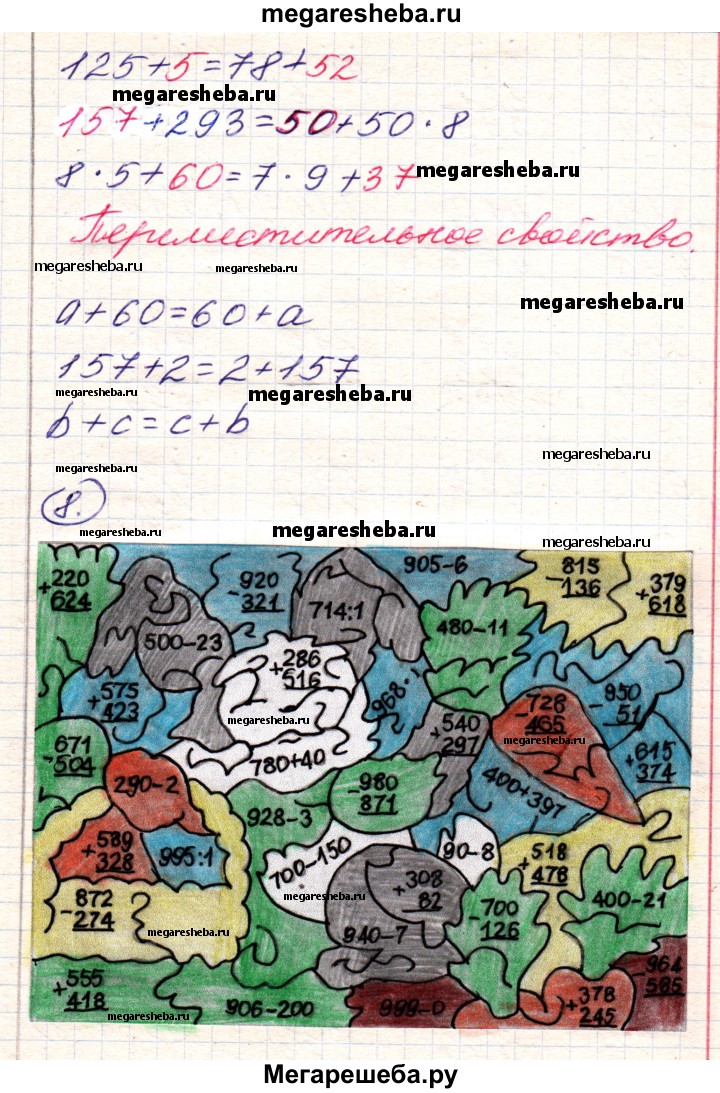 megaresheba.ru
125+5=78+52
megaresheba.ru
157+293=50+50·8
8·5+60=7·9+37
megaresheba.ru
Переместительное свойство.
megaresheba.ru
megaresheba.ru
a+60=60+a
megaresheba.ru
157+2=2+157
megaresheba.ru
megaresheba.ru
b+c=c+b
megaresheba.ru
megaresheba.ru
8.
megaresheba.ru
megaresheba.ru
megaresheba.ru
905-6
+220
624
-920
321
-815
136
+379
618
714:1
480-11
500-23
+286
516
+575
423
968:1
-950
51
megaresheba.ru
-728
465
+540
297
-671
504
+615
374
780+40
290-2
-980
871
400+397
928-3
+589
328
995:1
700-150
90-8
+518
478
+308
82
-872
274
megaresheba.ru
400-21
-700
126
megaresheba.ru
940-7
+555
418
-964
585
+378
245
906-200
999-0
megaresheba.ru
megaresheba.ru
Мегарешеба.ру